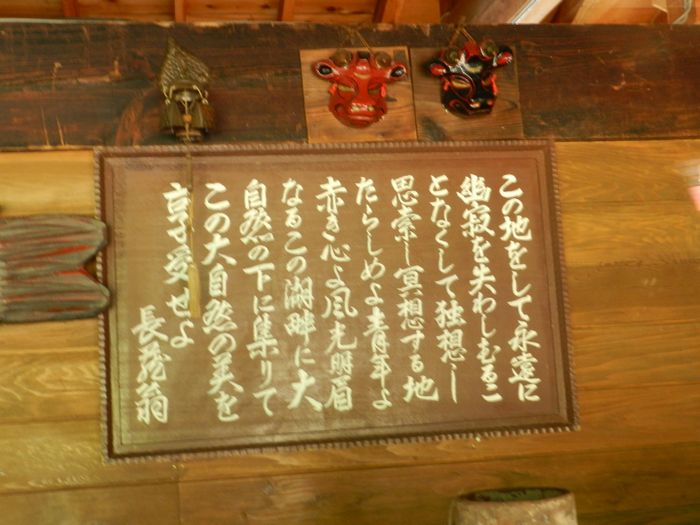 この地をして永遠に
幽寂を失わしむるこ
となくして独想し
思索し冥想する地
たらしめよ青年よ
赤き心よ風光明眉
なるこの湖畔に大
自然の下に集りて
この大自然の美を
享け愛せよ
長茂翁